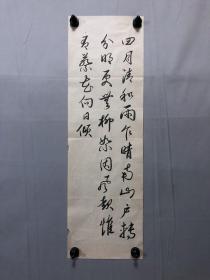 四月清和雨乍晴南山户转
分明更无柳絮因风起惟
有葵花向日倾